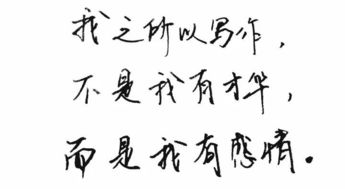 我之所以写作，
不是我有才华，
而是我有感情。